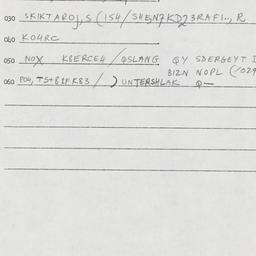 030 SKIKTAROJ,S (154/SH5N7KD23RAFI.., R
040 KO4RC
050 NOX K8ERCE4/QSLANG QY SDERGEYT I
BIZN NOPL (/029
060 PO4, TS+81FK83/ ) UNTERSHLAK Q—